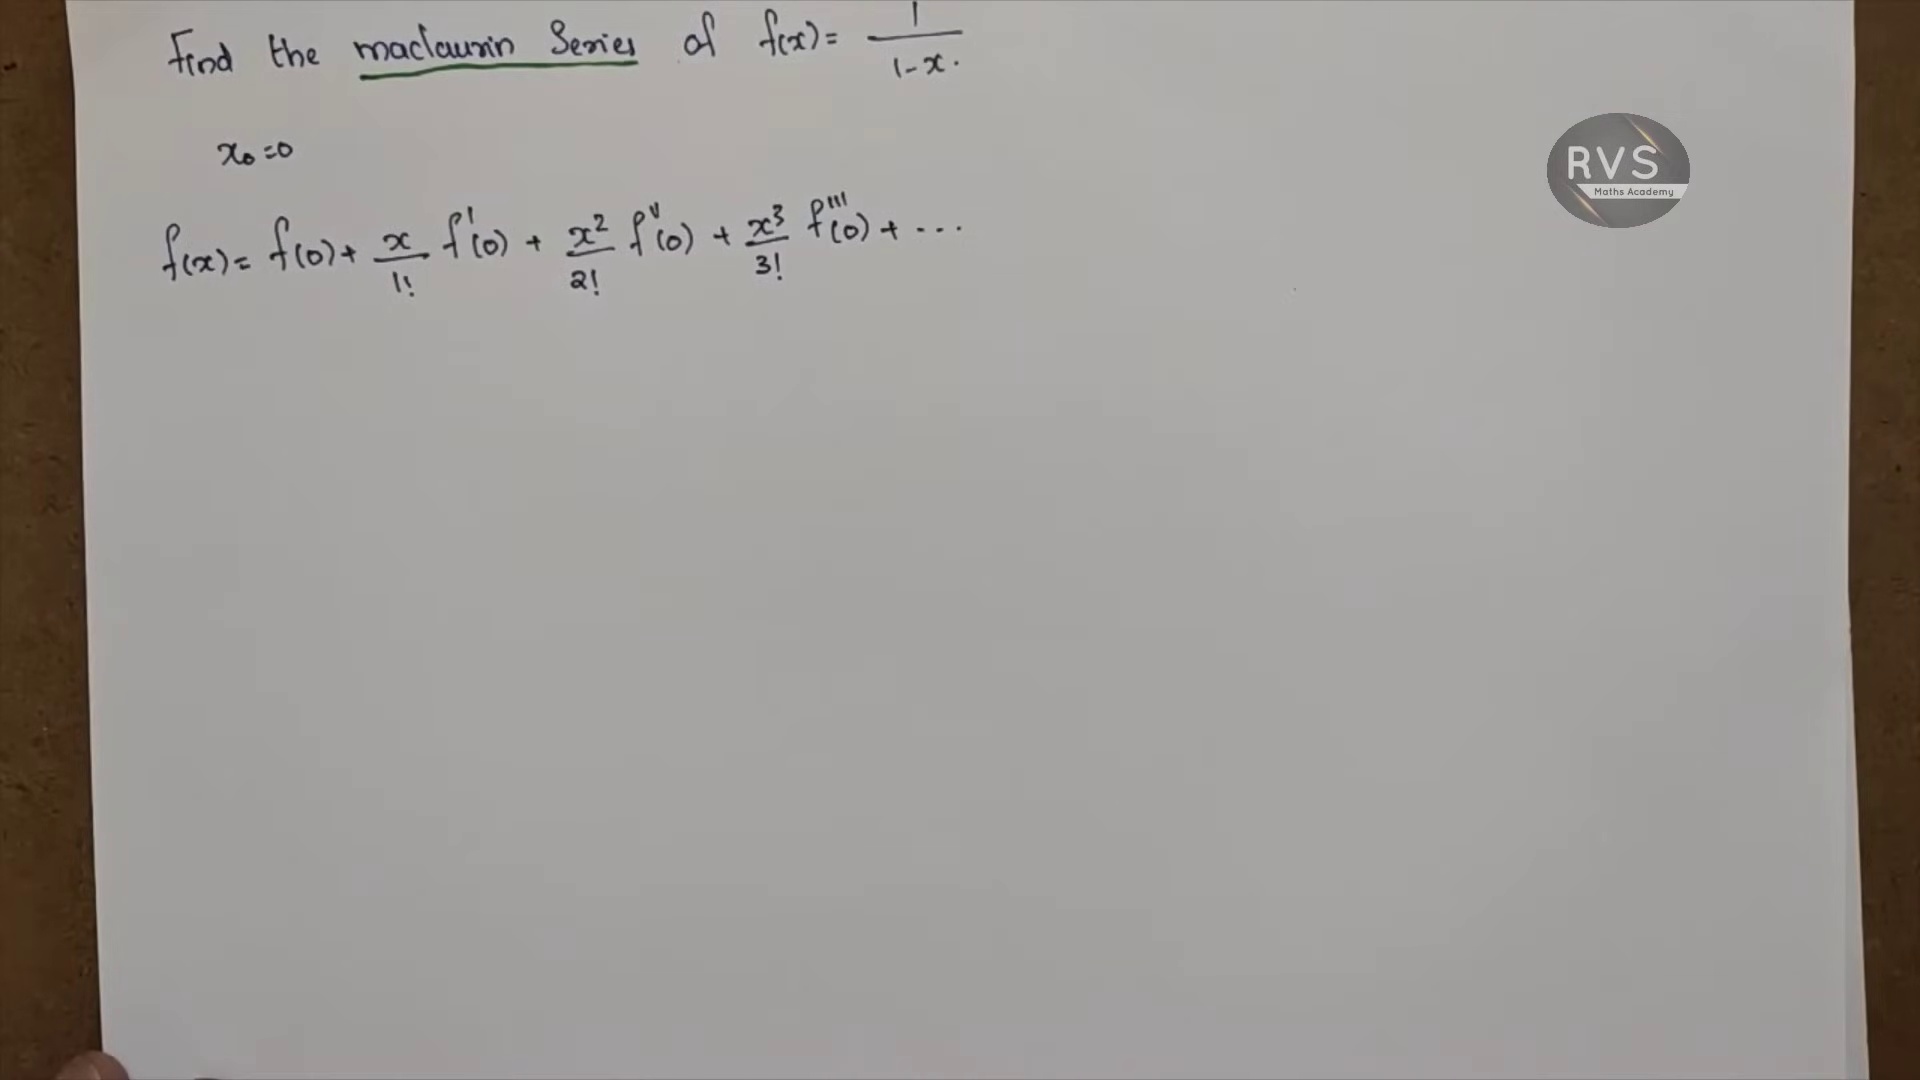 Find the maclaurin Series of f(x) = 1/1-x.
x₀=0
f(x) = f(0) + x/1! f'(0) + x²/2! f''(0) + x³/3! f'''(0) + ...
RVS
Maths Academy